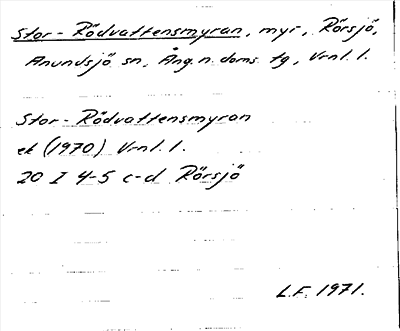 Stor-Rödvattensmyran, myr, Rörsjö,
Anundsjö sn, Ång.n. doms. tg, Vrnl. l.
Stor-Rödvattensmyran
ek (1970) Vrnl. l.
20 I 4-5 c-d Rörsjö
L.F. 1971.